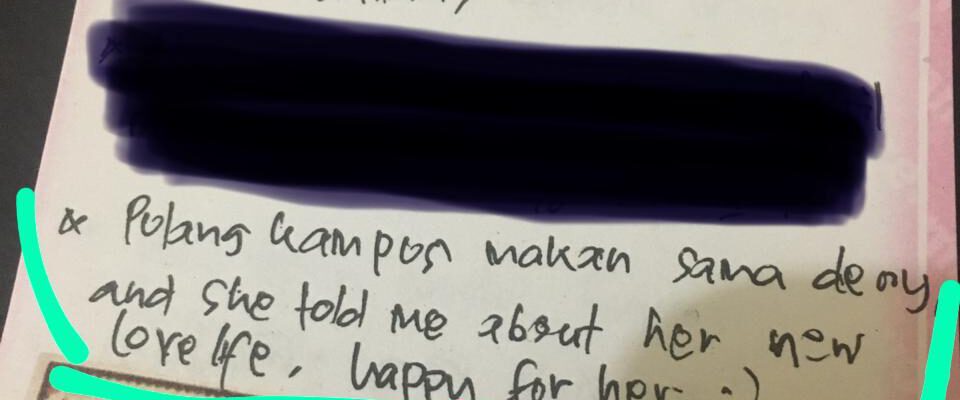 * Polang kampos makan sama deny,
and she told me about her new
lovelife, happy for her :)